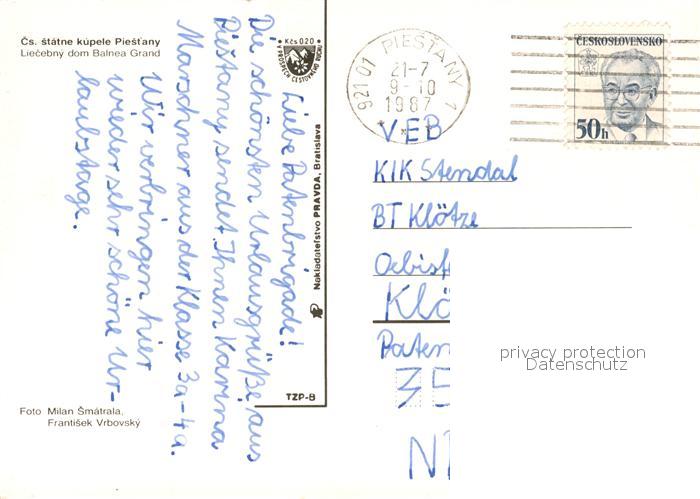 Čs. štátne kúpele Piešťany
Liečebný dom Balnea Grand
Kčs 020
Liebe Patenbrigade!
Die schönsten Urlausgrüße aus
Piešťany sendet Ihnen Karina
Marschner aus der Klasse 3a-4a.
Wir verbringen hier
wieder sehr schöne Ur-
laubstage.
Foto Milan Šmátrala,
František Vrbovský
Nakladateľstvo PRAVDA, Bratislava
TZP-B
921 01 PIEŠŤANY 1
21-7
9-10
1987
ČESKOSLOVENSKO
50h
VEB
KIK Stendal
BT Klötze
Klö
Paten
35
privacy protection
Datenschutz